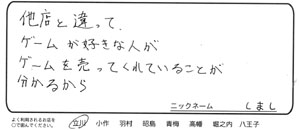 他店と違って、
ゲームが好きな人が
ゲームを売ってくれていることが
分かるから
ニックネーム しまし
よく利用されるお店を
○で囲んでください。 立川 小作 羽村 昭島 青梅 高幡 堀之内 八王子